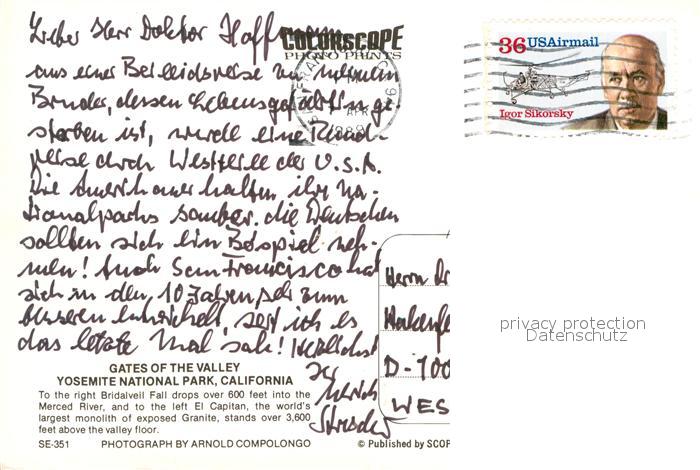 Lieber Herr Doktor Hoff
COLORSCOPE
PHOTO PRINTS
aus einer Beileidsreise zu meinem
Bruder, dessen Lebensgefährtin ge-
storben ist, wurde eine Rund-
reise durch Westteile der U.S.A.
Die Amerikaner halten ihre Na-
tionalparks sauber. die Deutschen
sollten sich ein Beispiel neh-
men! Auch San Francisco hat
sich in den 10 Jahren sehr zum
besseren entwickelt, seit ich es
das letzte Mal sah! Herzlichst
Ihr
Ulrich
36 USAirmail
Igor Sikorsky
APR
1989
Herrn Dr
D-100
WES
privacy protection
Datenschutz
GATES OF THE VALLEY
YOSEMITE NATIONAL PARK, CALIFORNIA
To the right Bridalveil Fall drops over 600 feet into the
Merced River, and to the left El Capitan, the world's
largest monolith of exposed Granite, stands over 3,600
feet above the valley floor.
SE-351 PHOTOGRAPH BY ARNOLD COMPOLONGO
© Published by SCOP